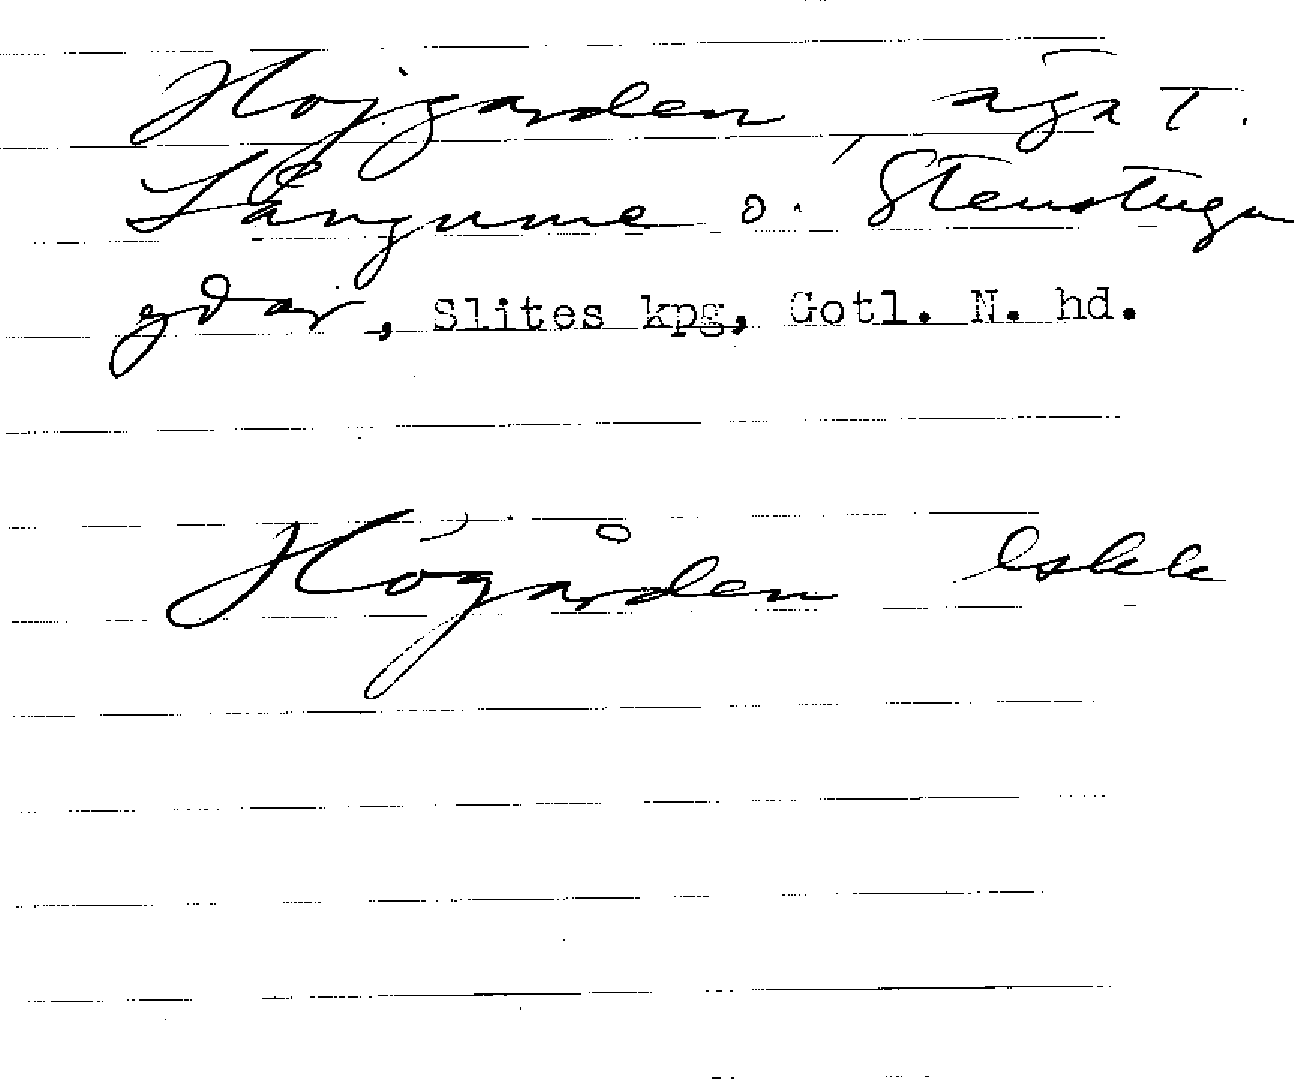 Hojgarden, äga t.
Långume o. Stenstugu
gdar, Slites kpg, Gotl. N. hd.
Högården